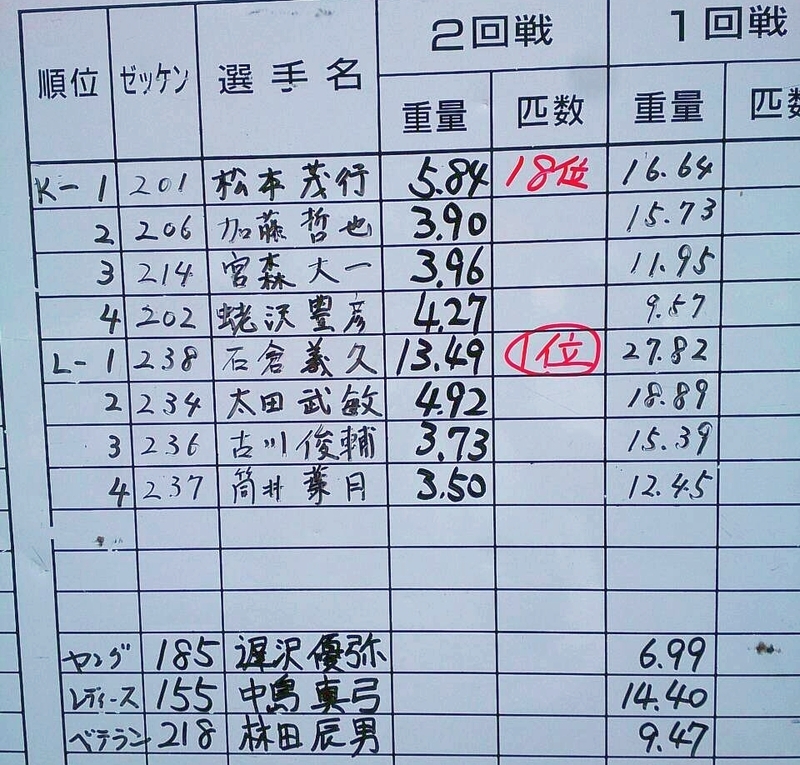 順位 ゼッケン 選手名 2回戦 1回戦
重量 匹数 重量 匹数
K-1 201 松本茂行 5.84 18位 16.64
2 206 加藤哲也 3.90 15.73
3 214 宮森大一 3.96 11.95
4 202 蛯沢豊彦 4.27 9.57
L-1 238 石倉義久 13.49 1位 27.82
2 234 太田武敏 4.92 18.89
3 236 古川俊輔 3.73 15.39
4 237 筒井葉月 3.50 12.45
ヤング 185 遅沢優弥 6.99
レディース 155 中島真弓 14.40
ベテラン 218 林田辰男 9.47